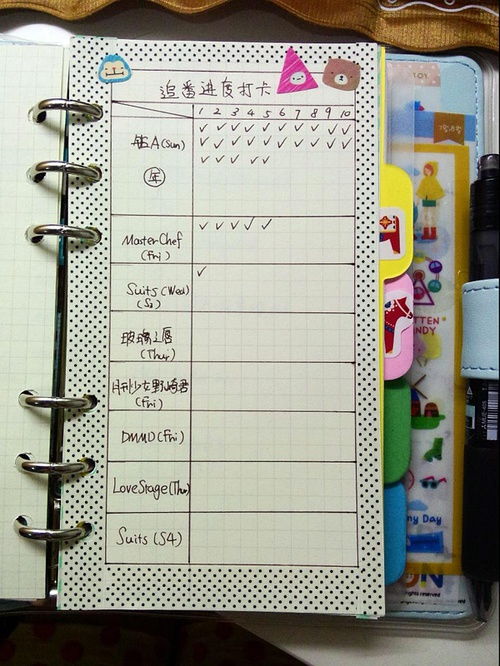 追番进度打卡
1 2 3 4 5 6 7 8 9 10
钻A(Sun)
年
MasterChef
(Fri)
Suits(Wed)
(S2)
玻璃之唇
(Thur)
月刊少女野崎君
(Fri)
DMMD(Fri)
LoveStage(Thu)
Suits(S4)
TOY
TTEN
NDY
ny Day
ON
rights reserved